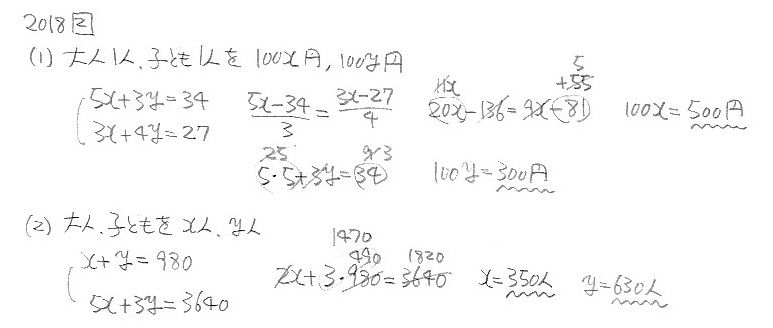 2018 2
(1) 大人1人、子ども1人を 100x円, 100y円
5x+3y=34
3x+4y=27
5x-34/3 = 3x-27/4
11x 5 +55
20x-136=9x-81
100x=500円
25 9 3
5・5+3y=34
100y=300円
(2) 大人、子どもを x人、y人
x+y=980
5x+3y=3640
1470
490 1820
2x+3・980=3640
x=350人 y=630人